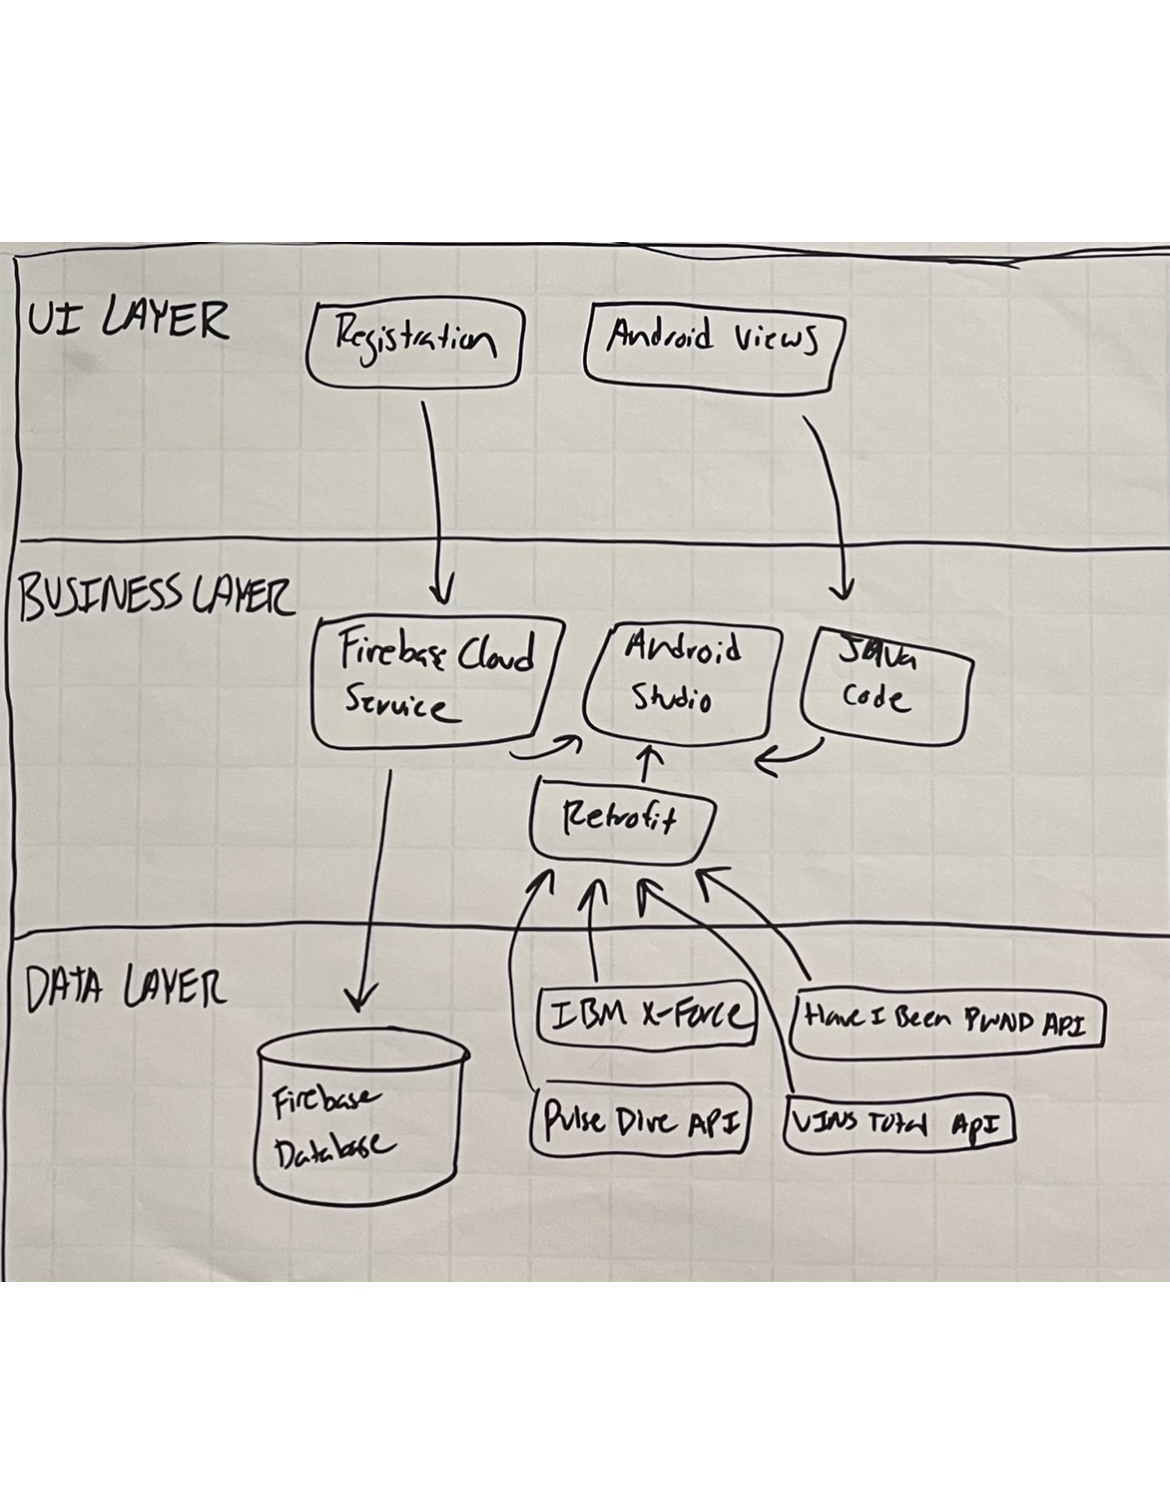 UI LAYER
Registration
Android Views
BUSINESS LAYER
Firebase Cloud
Service
Android
Studio
Java
Code
Retrofit
DATA LAYER
Firebase
Database
IBM X-Force
Have I Been PWND API
Pulse Dive API
VINS Total API